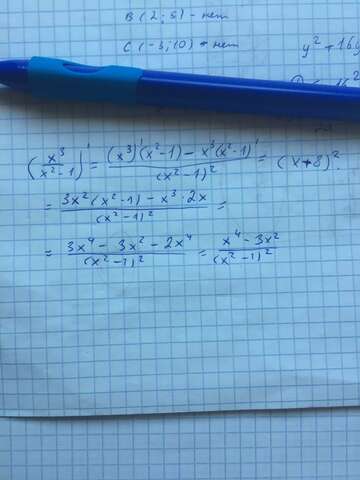 B (2; 5) - нет
C (-3; 10) - нет
y² + 16y
(x³/(x²-1))' = ((x³)'(x²-1) - x³(x²-1)')/(x²-1)² =
(x+8)².
= (3x²(x²-1) - x³·2x)/(x²-1)² =
= (3x⁴ - 3x² - 2x⁴)/(x²-1)² = (x⁴ - 3x²)/(x²-1)²